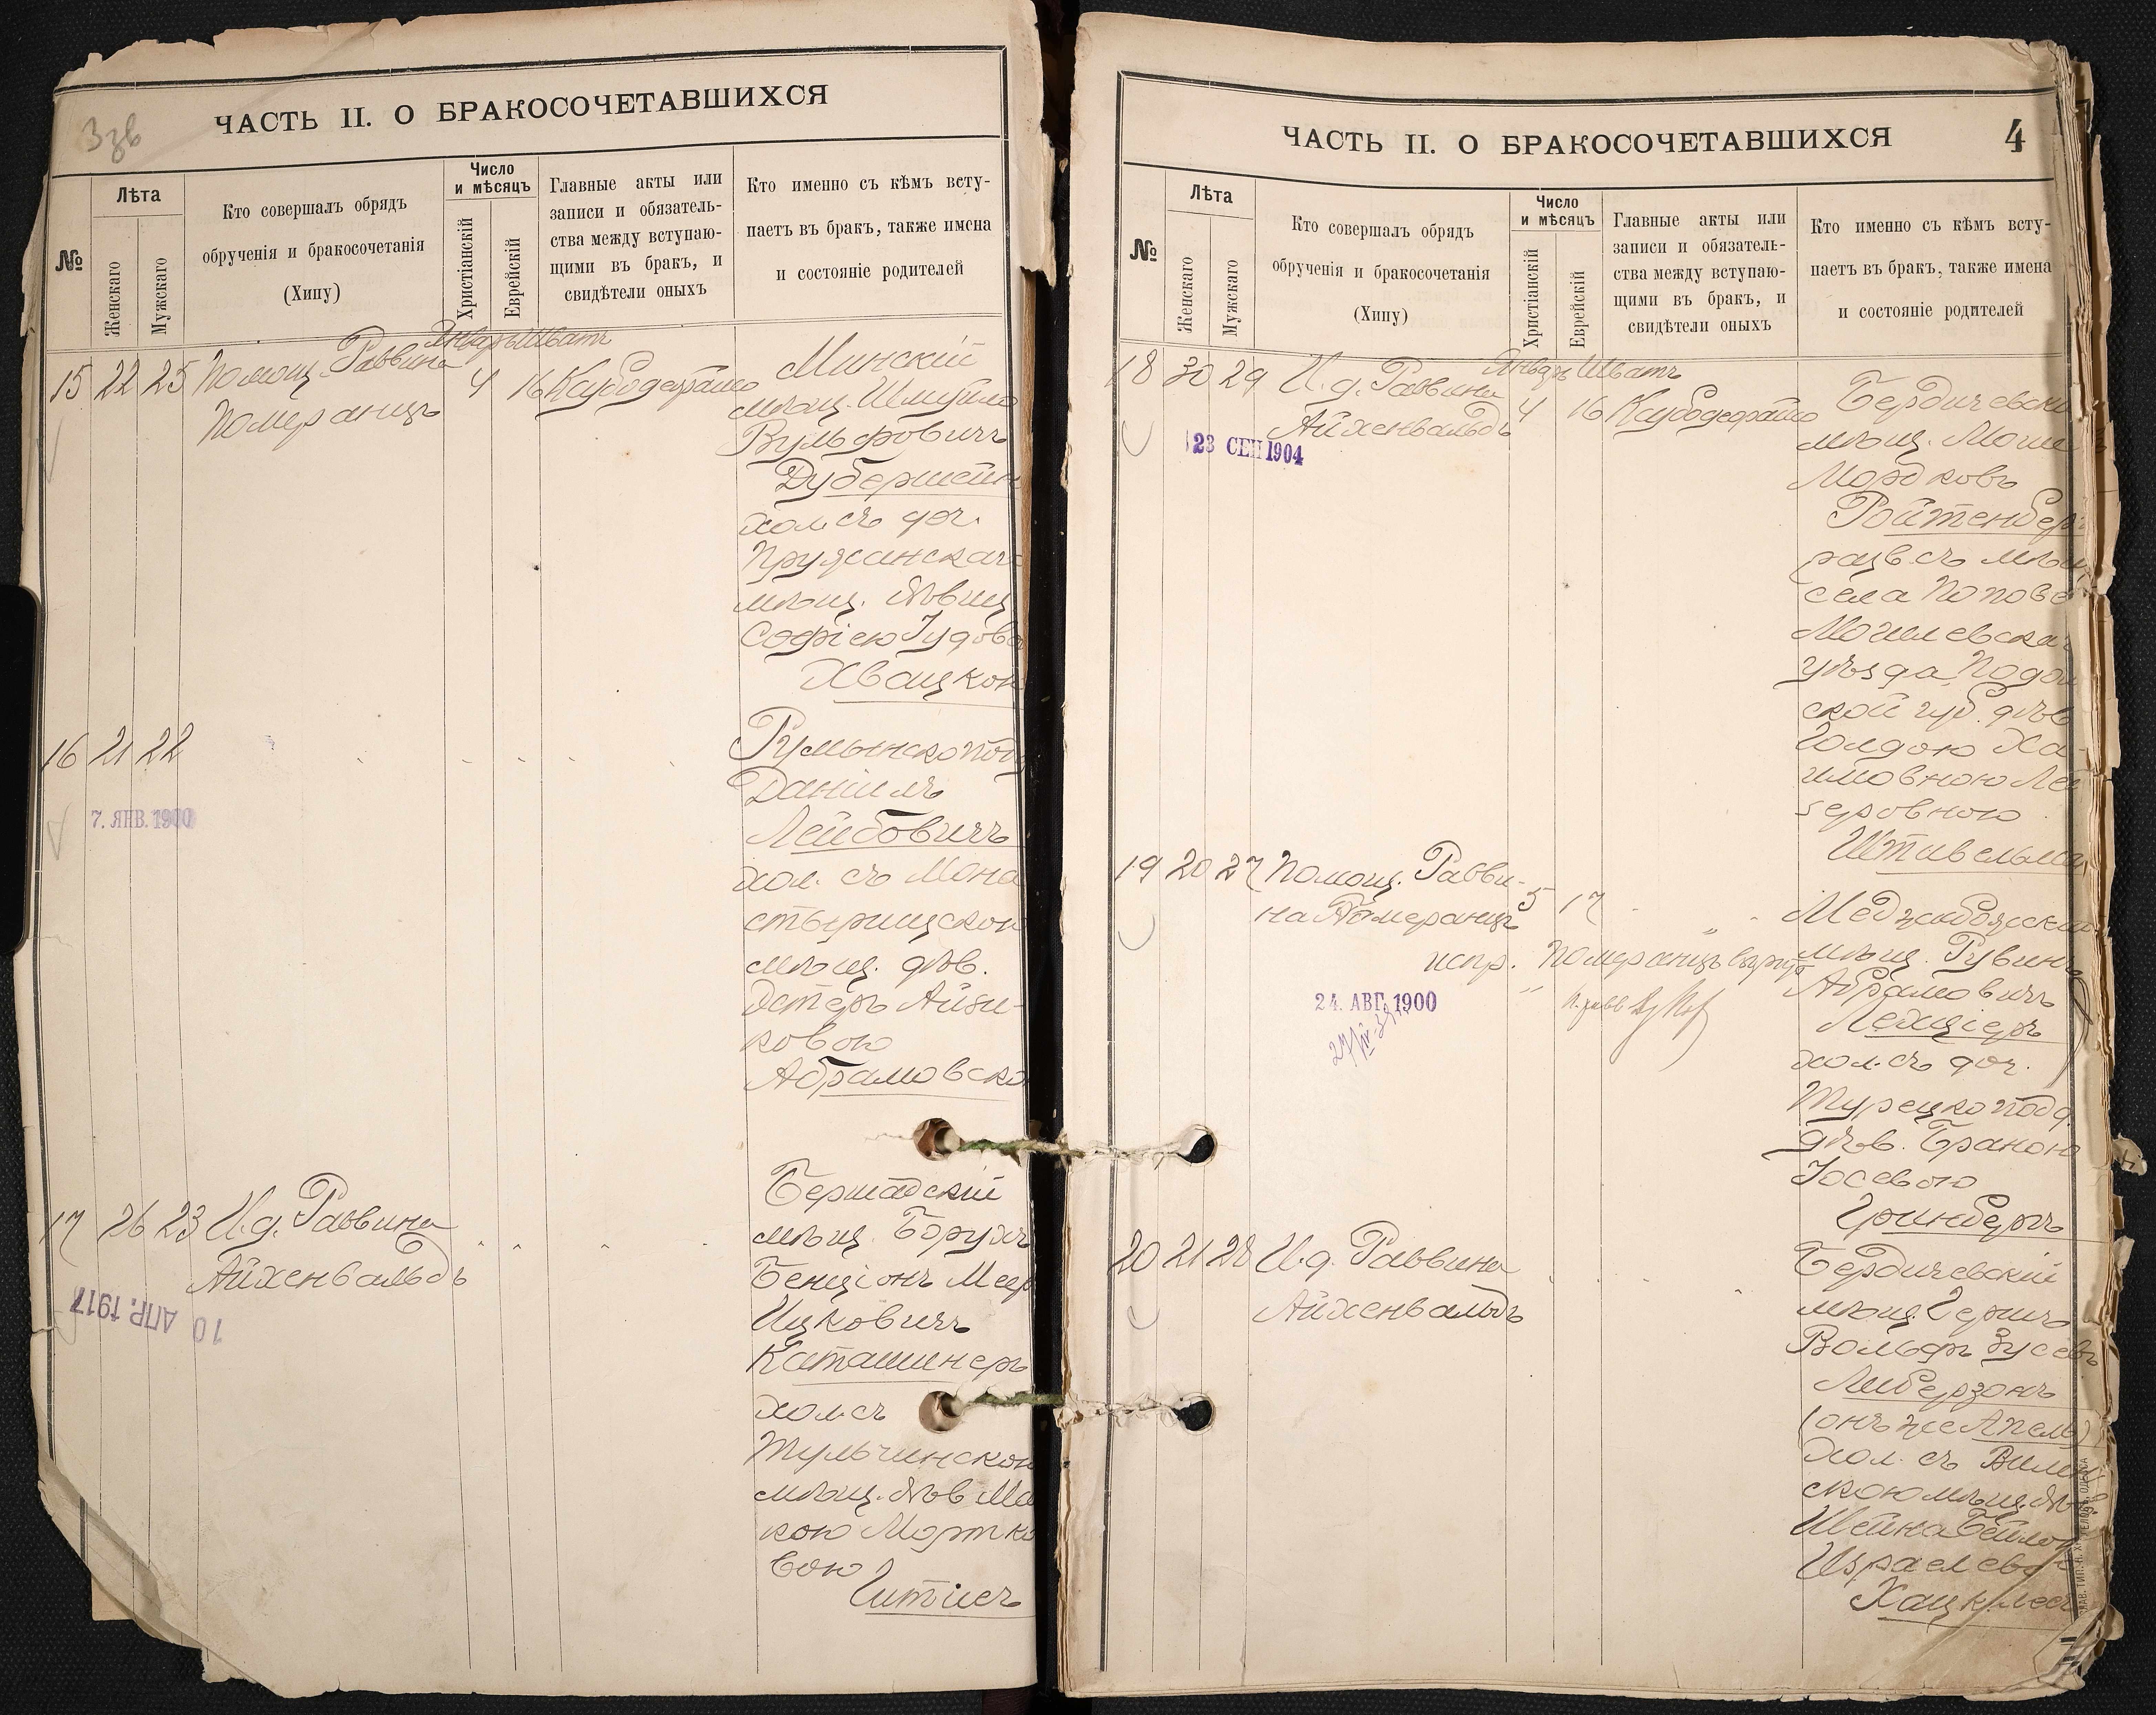 ЧАСТЬ II. О БРАКОСОЧЕТАВШИХСЯ
№
Лѣта
Женскаго
Мужскаго
Кто совершалъ обрядъ
обрученія и бракосочетанія
(Хипу)
Число
и мѣсяцъ
Христіанскій
Еврейскій
Главные акты или
записи и обязатель-
ства между вступаю-
щими въ бракъ, и
свидѣтели оныхъ
Кто именно съ кѣмъ всту-
паетъ въ бракъ, также имена
и состояніе родителей
Январь Шватъ
15 22 25 Помощ. Раввина
Померанцъ
4 16
Минскій
мѣщ. Шмуйло
Вульфовичъ
Дуберштейн
хол. съ доч.
Пружанскаго
мѣщ. дѣвиц
Софіею Іудово
Хвацкою
16 21 22
Румынскопод
Даніилъ
Лейбовичъ
хол. съ Мона
стырищскою
мѣщ. дѣв.
Эстеръ Айзи-
ковою
Абрамовско
7. ЯНВ. 1900
17 26 23 И.д. Раввина
Айхенвальдъ
Бершадскій
мѣщ. Борухъ
Бенціонъ Меер
Ицковичъ
Каташинеръ
хол. съ
Тульчинскою
мѣщ. дѣв. Ми
кою Мортко
вою
Гитисъ
10 АПР. 1917
ЧАСТЬ II. О БРАКОСОЧЕТАВШИХСЯ
4
№
Лѣта
Женскаго
Мужскаго
Кто совершалъ обрядъ
обрученія и бракосочетанія
(Хипу)
Число
и мѣсяцъ
Христіанскій
Еврейскій
Главные акты или
записи и обязатель-
ства между вступаю-
щими въ бракъ, и
свидѣтели оныхъ
Кто именно съ кѣмъ всту-
паетъ въ бракъ, также имена
и состояніе родителей
Январь Шватъ
18 30 29 И.д. Раввина
Айхенвальдъ
4 16
23 СЕН 1904
Бердичевски
мѣщ. Моше
Мордковъ
Ройтенбер
разв. съ мѣщ
села Попово
Могилевска
уѣзда Подол
ской губ. дѣв
Голдою Ха-
имовною Лей
зеровною
Штивельма
19 20 27 Помощ. Равви-
на Померанцъ
5 17
испр. Померанцъ вѣрно
24. АВГ. 1900
Меджибожски
мѣщ. Рувинъ
Абрамовичъ
хол. съ доч.
Турецкопод.
дѣв. Браною
Іосевою
Гринбергъ
20 21 28 И.д. Раввина
Айхенвальдъ
Бердичевскій
мѣщ. Гершъ
Вольфъ Зусевъ
Либерзонъ
(онъ же Апель)
хол. съ Вилен
скою мѣщ. дѣв
Шейна Бейлою
Израелевою
Хацкелес